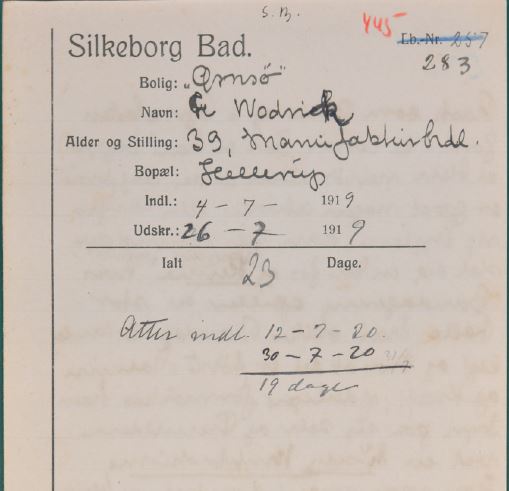 S. B.
445
Lb.-Nr. 257
283
Silkeborg Bad.
Bolig: „Ørnsø"
Navn: Wodrick
Alder og Stilling: 39, Manufakturhdl.
Bopæl: Hellerup
Indl.: 4 - 7 - 1919
Udskr.: 26 - 7 1919
Ialt 23 Dage.
Atter indl. 12 - 7 - 20.
30 - 7 - 20
19 dage